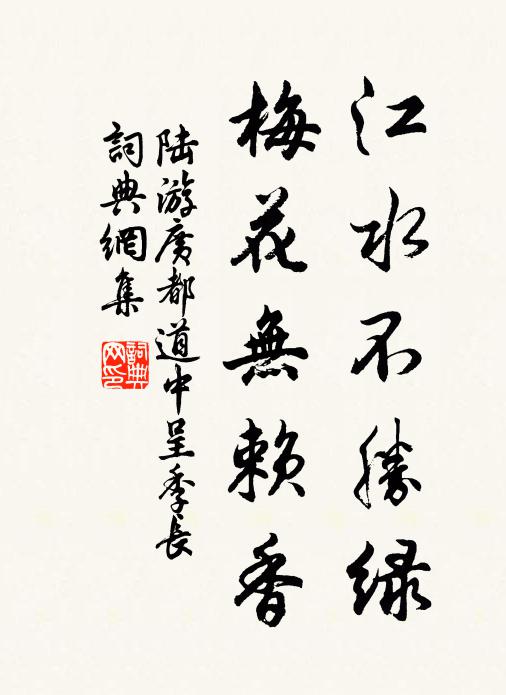 江水不勝綠
梅花無賴香
陸游廣都道中呈季長
詞典網集
詞典网印